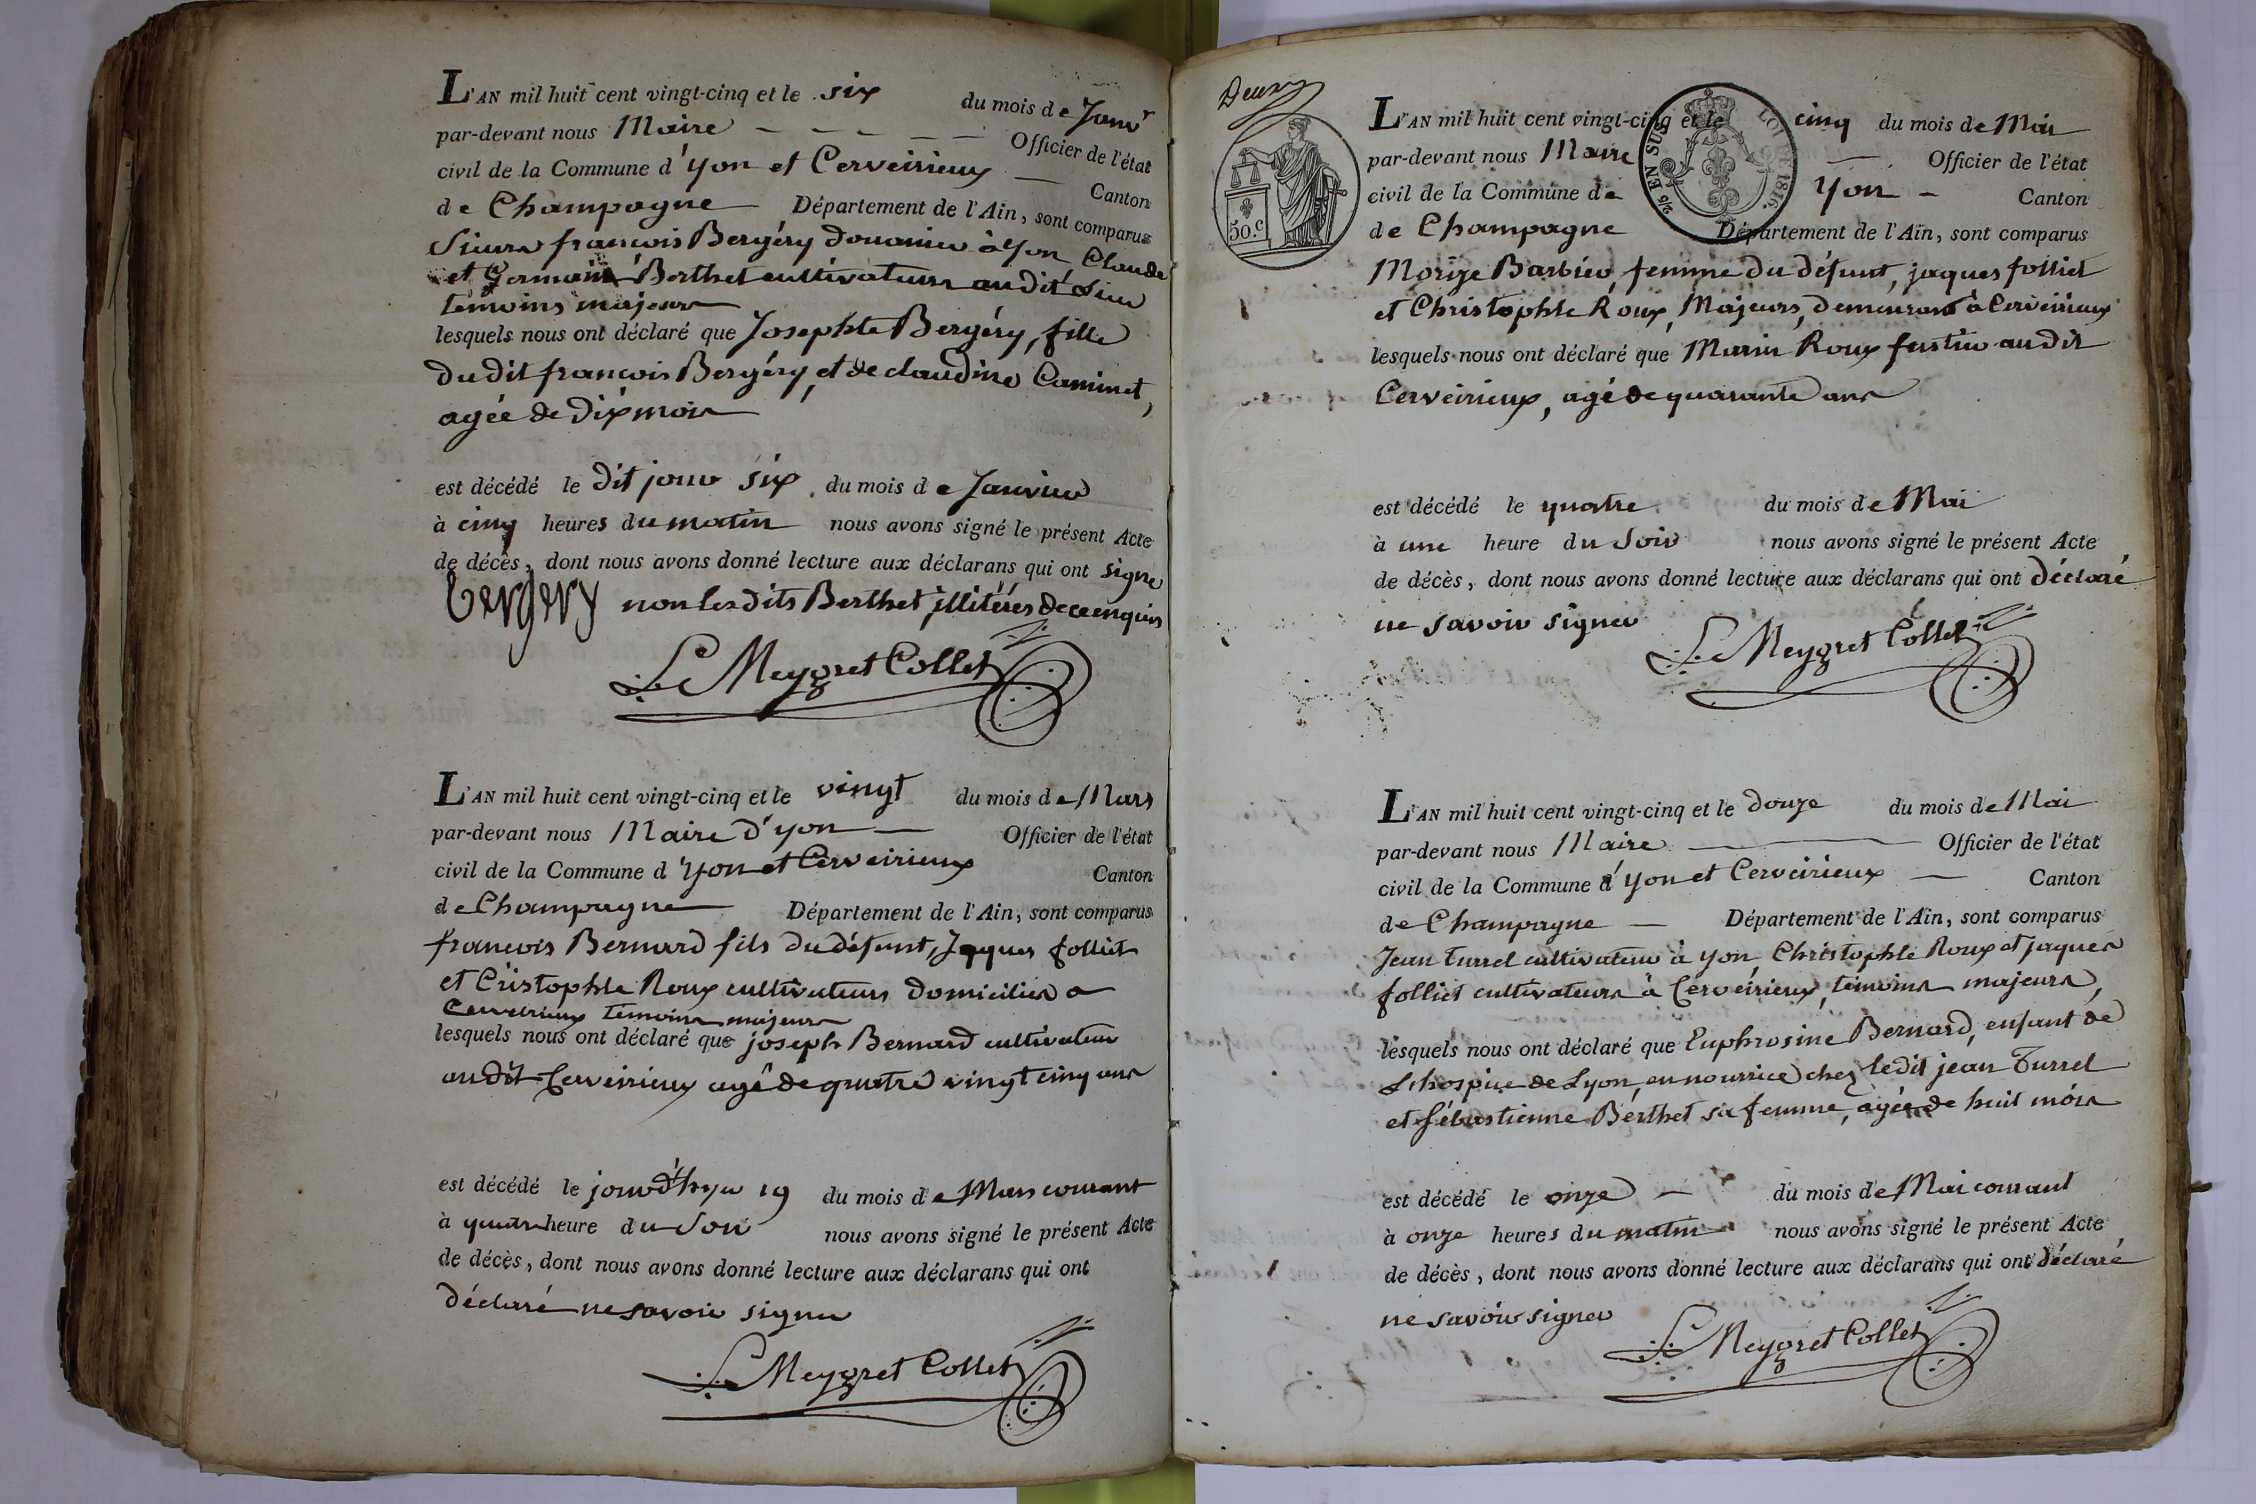 L'AN mil huit cent vingt-cinq et le six du mois de Janvr
par-devant nous Maire Officier de l'état
civil de la Commune d'yon et Cerveirieux Canton
de Champagne Département de l'Ain, sont comparus
Sieurs francois Bergéry douanier à Yon Claude
et Germain Berthet cultivateurs audit lieu
témoins majeurs
lesquels nous ont déclaré que Josephte Bergéry, fille
du dit francois Bergéry, et de claudine Caminet,
agée de dix mois
est décédé le dit jour six du mois de Janvier
à cinq heures du matin nous avons signé le présent Acte
de décès, dont nous avons donné lecture aux déclarans qui ont signé
bergery non lesdits Berthet illitérés de ce enquis
Le Meygret Collet
L'AN mil huit cent vingt-cinq et le vingt du mois de Mars
par-devant nous Maire d'yon Officier de l'état
civil de la Commune d'yon et Cerveirieux Canton
de Champagne Département de l'Ain, sont comparus
francois Bernard fils du défunt, Jaques folliet
et Cristophle Roux cultivateurs domiciliés a
Cerveirieux témoins majeurs
lesquels nous ont déclaré que joseph Bernard cultivateur
audit Cerveirieux agé de quatre vingt cinq ans
est décédé le jour d'hyer 19 du mois de Mars courant
à quatre heure du Soir nous avons signé le présent Acte
de décès, dont nous avons donné lecture aux déclarans qui ont
déclaré ne savoir signer
Le Meygret Collet
30.c
2/5 EN SUS LOI DE 1816.
L'AN mil huit cent vingt-cinq et le cinq du mois de Mai
par-devant nous Maire Officier de l'état
civil de la Commune de Yon Canton
de Champagne Département de l'Ain, sont comparus
Morize Barbier femme du défunt, jaques folliet
et Christophle Roux, Majeurs, demeurans à Cerveirieux
lesquels nous ont déclaré que Marin Roux audit
Cerveirieux, agé de quarante ans
est décédé le quatre du mois de Mai
à une heure du Soir nous avons signé le présent Acte
de décès, dont nous avons donné lecture aux déclarans qui ont déclaré
ne savoir signer
Le Meygret Collet
L'AN mil huit cent vingt-cinq et le douze du mois de Mai
par-devant nous Maire Officier de l'état
civil de la Commune d'yon et Cerveirieux Canton
de Champagne Département de l'Ain, sont comparus
Jean Turrel cultivateur à yon, Christophle Roux et jaques
folliet cultivateurs à Cerveirieux, témoins majeurs,
lesquels nous ont déclaré que Euphrosine Bernard, enfant de
L'hospice de Lyon, en nourrice chez ledit jean Turrel
et Sébastienne Berthet sa femme, agée de huit mois
est décédé le onze du mois de Mai courant
à onze heures du matin nous avons signé le présent Acte
de décès, dont nous avons donné lecture aux déclarans qui ont déclaré
ne savoir signer
Le Meygret Collet